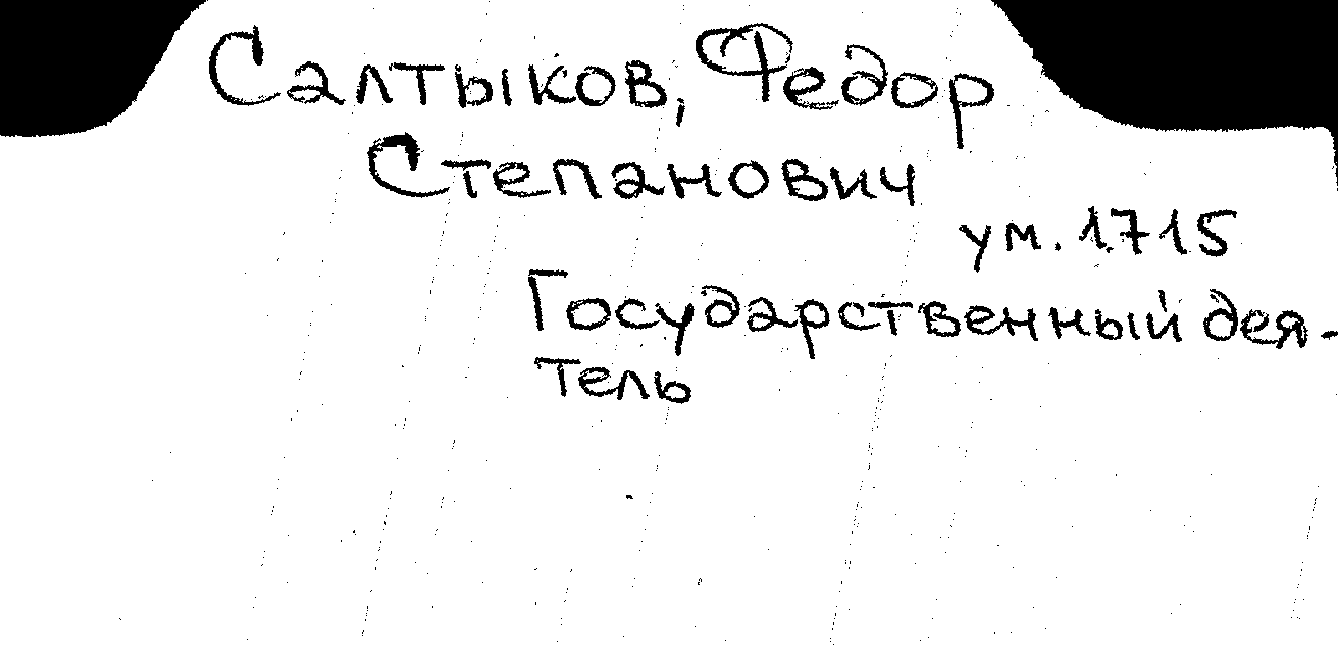 Салтыков, Федор
Степанович
ум. 1715
Государственный дея-
тель